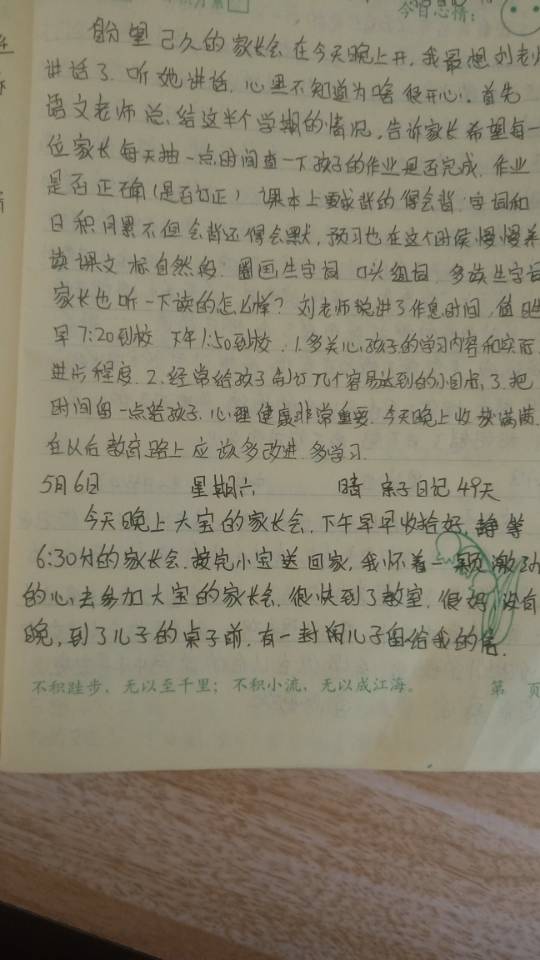 今日心情：
盼望已久的家长会在今天晚上开，我最想刘老师
讲话了．听她讲话．心里不知道为啥很开心．首先
语文老师总给这半个学期的情况，告诉家长希望每一
位家长每天抽一点时间查一下孩子的作业是否完成．作业
是否正确（是否订正）课本上要求背的得会背．字词和
日积月累不但会背还得会默，预习也在这个时侯慢慢养
读课文标自然段．圈画生字词 口头组词．多读生字词
家长也听一下读的怎么样？刘老师就讲了作息时间，值日生
早7:20到校 下午1:50到校．1.多关心孩子的学习内容和实际
进步程度．2.经常给孩子制订几个容易达到的小目标，3.把
时间留一点给孩子．心理健康非常重要．今天晚上收获满满．
在以后教育路上应该多改进．多学习．
5月6日 星期六 晴 亲子日记49天
今天晚上大宝的家长会．下午早早收拾好．静等
6:30分的家长会．接完小宝送回家，我怀着一颗激动
的心去参加大宝的家长会．很快到了教室．很好，没有
晚，到了儿子的桌子前．有一封 儿子留给我的信．
不积跬步，无以至千里；不积小流，无以成江海。 第 页